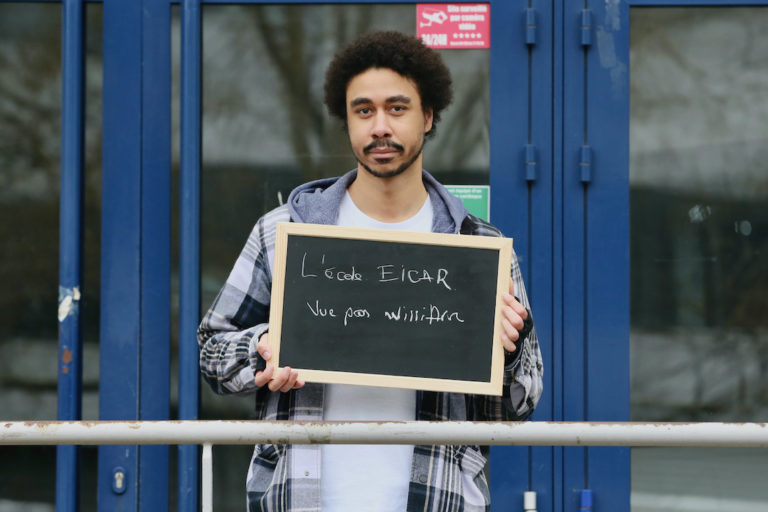 Site surveillé
par caméra
vidéo
24/24H
L'école EICAR
Vue par William